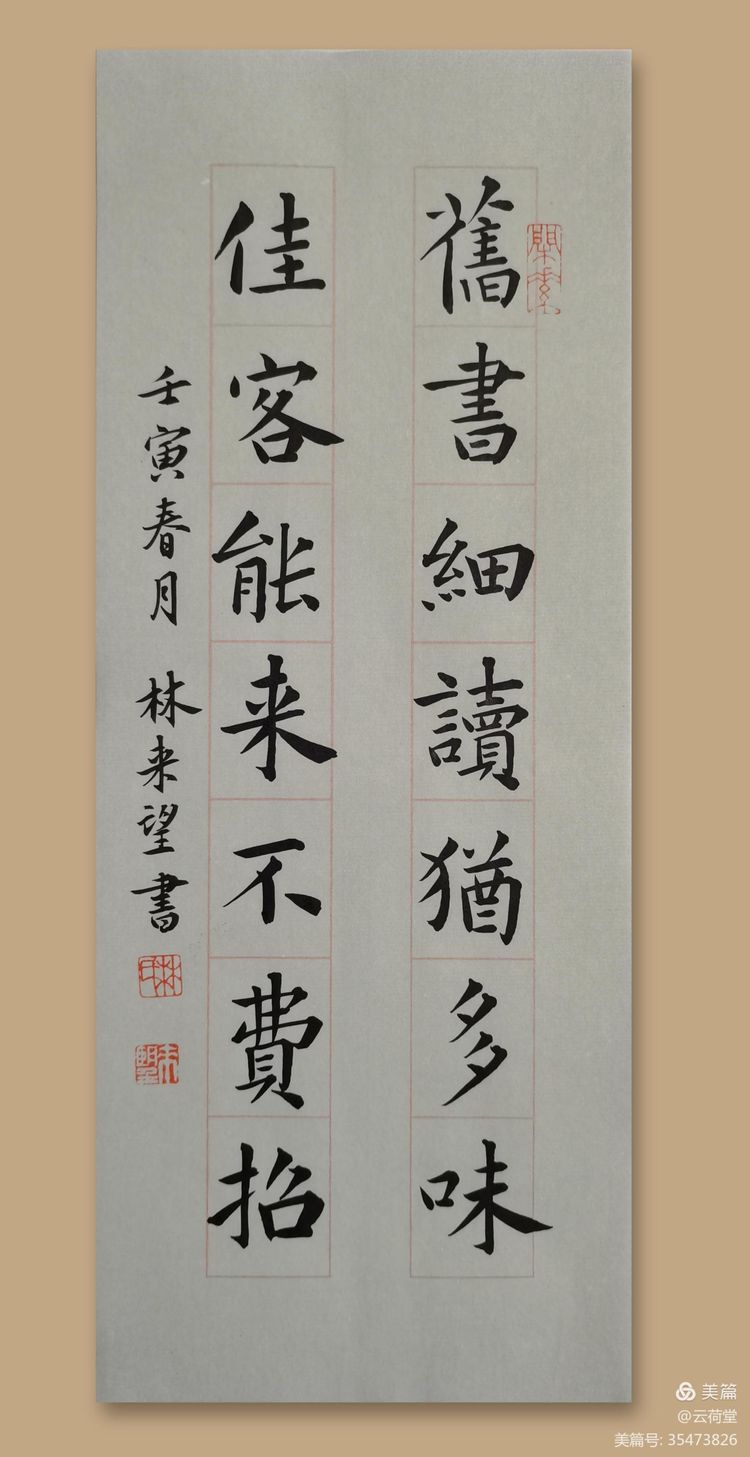 舊書細讀猶多味
佳客能来不費招
壬寅春月 林来望書
美篇
@云荷堂
美篇号: 35473826